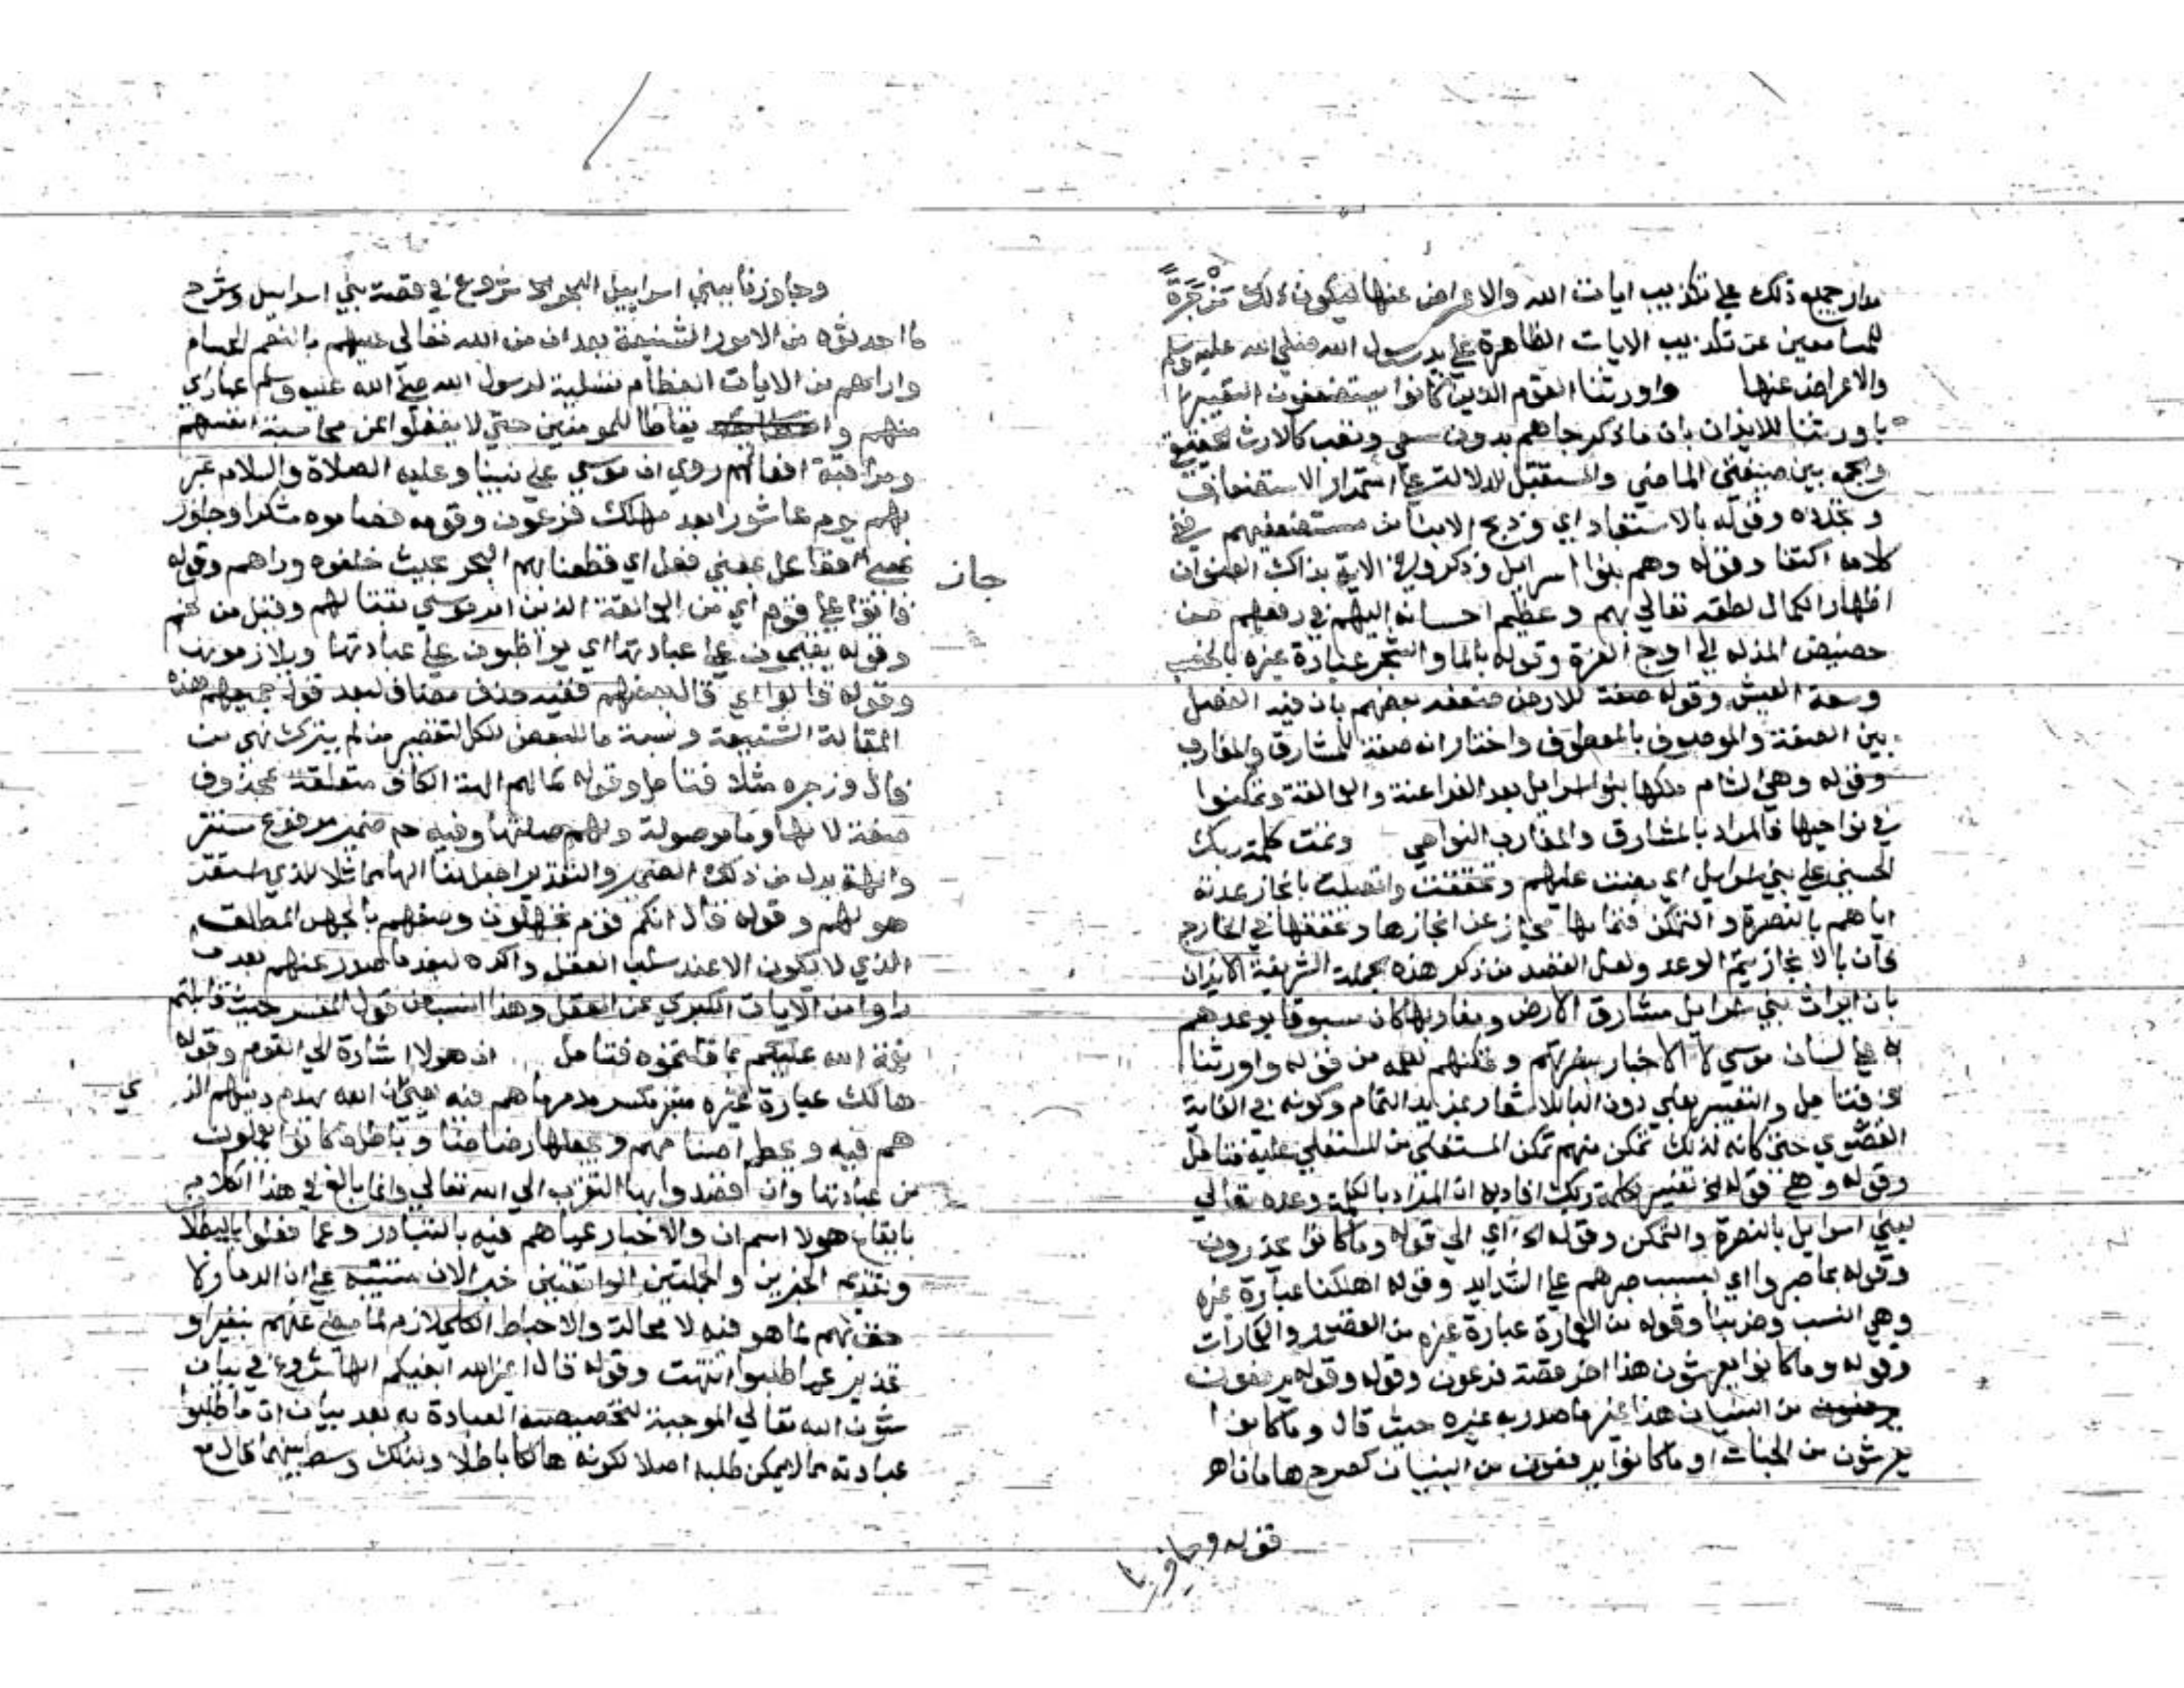 مدار جميع ذلك على تكذيب ايات الله والاعراض عنها ليكون ذلك مزجرة
للسامعين عن تكذيب الايات الظاهرة على يد رسول الله صلى الله عليه وسلم
والاعراض عنها واورثنا القوم الذين كانوا يستضعفون التعبير
باورثنا للايذان بان ما ذكر جاهم بدون سعي وتعب كالارث
والجمع بين صيغتي الماضي والمستقبل للدلالة على استمرار الاستضعاف
وتجدده وقوله بالاستعباد اي وذبح الابنا من مستضعفيهم ففي
كلامه اكتفا وقوله وهم بنوا اسرايل وذكروا في الاية بذاك العنوان
اظهارا لكمال لطفه تعالى بهم وعظيم احسانه اليهم في رفعهم من
حضيض المذله الى اوج العزة وقوله بالما والشجر عبارة غيره بالخصب
وسعة العيش وقوله صفة للارض ضعفه بعضهم بان فيه الفصل
بين الصفة والموصوف بالمعطوف واختار انه صفة للمشارق والمغارب
وقوله وهي الشام ملكها بنوا اسرايل بعد الفراعنة والعمالقة وتمكنوا
في نواحيها فالمراد بالمشارق والمغارب النواحي وتمت كلمة ربك
الحسنى على بني اسرايل اي مضت عليهم وتحققت واتصلت بانجاز عدته
اياهم بالنصرة والتمكن فتمامها مجاز عن انجازها وتحققها في الخارج
فان بالانجاز يتم الوعد ولعل القصد من ذكر هذه الجملة الشريفة الايذان
بان ايراث بني اسرايل مشارق الارض ومغاربها كان مسبوقا بوعدهم
به على لسان موسى لا الاخبار بنصرتهم وتمكنهم لعلمه من قوله واورثنا
الخ فتامل والتعبير بعلى دون البا للاشعار بمزيد التمام وكونه في الغاية
القصوي حتى كانه لذلك تمكن منهم تمكن المستعلي من المستعلي عليه فتامل
وقوله وهي قوله الخ تفسير لكلمة ربك افاد به ان المراد بالكلمة وعده تعالى
لبني اسرايل بالنصرة والتمكن وقوله الخ اي الى قوله وما كانوا يحذرون
وقوله بما صبروا اي بسبب صبرهم على الشدايد وقوله اهلكنا عبارة غيره
وهي انسب وخربنا وقوله من العمارة عبارة غيره من القصور والعمارات
وقوله وما كانوا يعرشون هذا اخر قصة فرعون وقوله وقوله يرفعون
من البنيان هذا غير ما صدر به غيره حيث قال وما كانوا
يعرشون من الجنات او ما كانوا يرفعون من البنيان كصرح هامان اهـ
قوله وجاوزنا
وجاوزنا ببني اسراييل البحر الخ شروع في قصة بني اسراييل وشرح
ما احدثوه من الامور الشنيعة بعد ان من الله تعالى عليهم بالنعم الجسام
واراهم من الايات العظام تسلية لرسول الله صلى الله عليه وسلم عما راي
منهم وايقاظا للمومنين حتى لا يغفلوا عن محاسبة انفسهم
ومراقبة افعالهم روي ان موسى على نبينا وعليه الصلاة والسلام عبر
بهم يوم عاشورا بعد مهلك فرعون وقومه فصاموه شكرا وجاوز
بمعنى ففاعل بمعنى فعل اي قطعنا بهم البحر بحيث خلفوه وراهم وقوله
جاز
فاتوا على قوم اي من العمالقة الذين امر موسى بقتالهم وقيل من لخم
وقوله يقيمون على عبادتها اي يواظبون على عبادتها ويلازمونها
وقوله قالوا اي قال بعضهم ففيه حذف مضاف لبعد قول جميعهم هذه
المقالة الشنيعة ونسبة ما للبعض للكل لتقصير من لم يترك نهي من
قال وزجره مثلا فتامل وقوله كما لهم الهة الكاف متعلقة بمحذوف
صفة لالها وما موصولة ولهم صلتها وفيه ضمير مرفوع مستتر
والهة بدل من ذلك الضمير والتقدير اجعل لنا الها مماثلا للذي استقر
هو لهم وقوله قال انكم قوم تجهلون وصفهم بالجهل المطلق
الذي لا يكون الا عند سلب العقل واكده لبعد ما صدر عنهم بعدما
راوا من الايات الكبرى عن العقل وهذا انسب من قول المفسر حيث قابلتم
نعمة الله عليكم بما قلتموه فتامل ان هولا اشارة الى القوم وقوله
هالك عبارة غيره متبر مكسر مدمر ما هم فيه يعني ان الله يهدم دينهم الذي
هم فيه ويحطم اصنامهم ويجعلها رضاضا وباطل ما كانوا يعملون
من عبادتها وان قصدوا بها التقرب الى الله تعالى وانما بالغ في هذا الكلام
بايقاع هولا اسم ان والاخبار عما هم فيه بالتبار وعما فعلوا بالبطلان
وتقديم الخبرين والجملتين الواقعتين خبرا لان للتنبيه على ان الدمار
لهم لما هو فيه لا محالة والاحباط الكلي لازم لما مضى عنهم تنفيرا و
تحذيرا عما طلبوا انتهت وقوله قال اغير الله ابغيكم الها شروع في بيان
شون الله تعالى الموجبة لتخصيص العبادة به بعد بيان ان ما طلبوا
عبادته مما لا يمكن طلبه اصلا لكونه هالكا باطلا ولذلك وسط بينهما قال مع